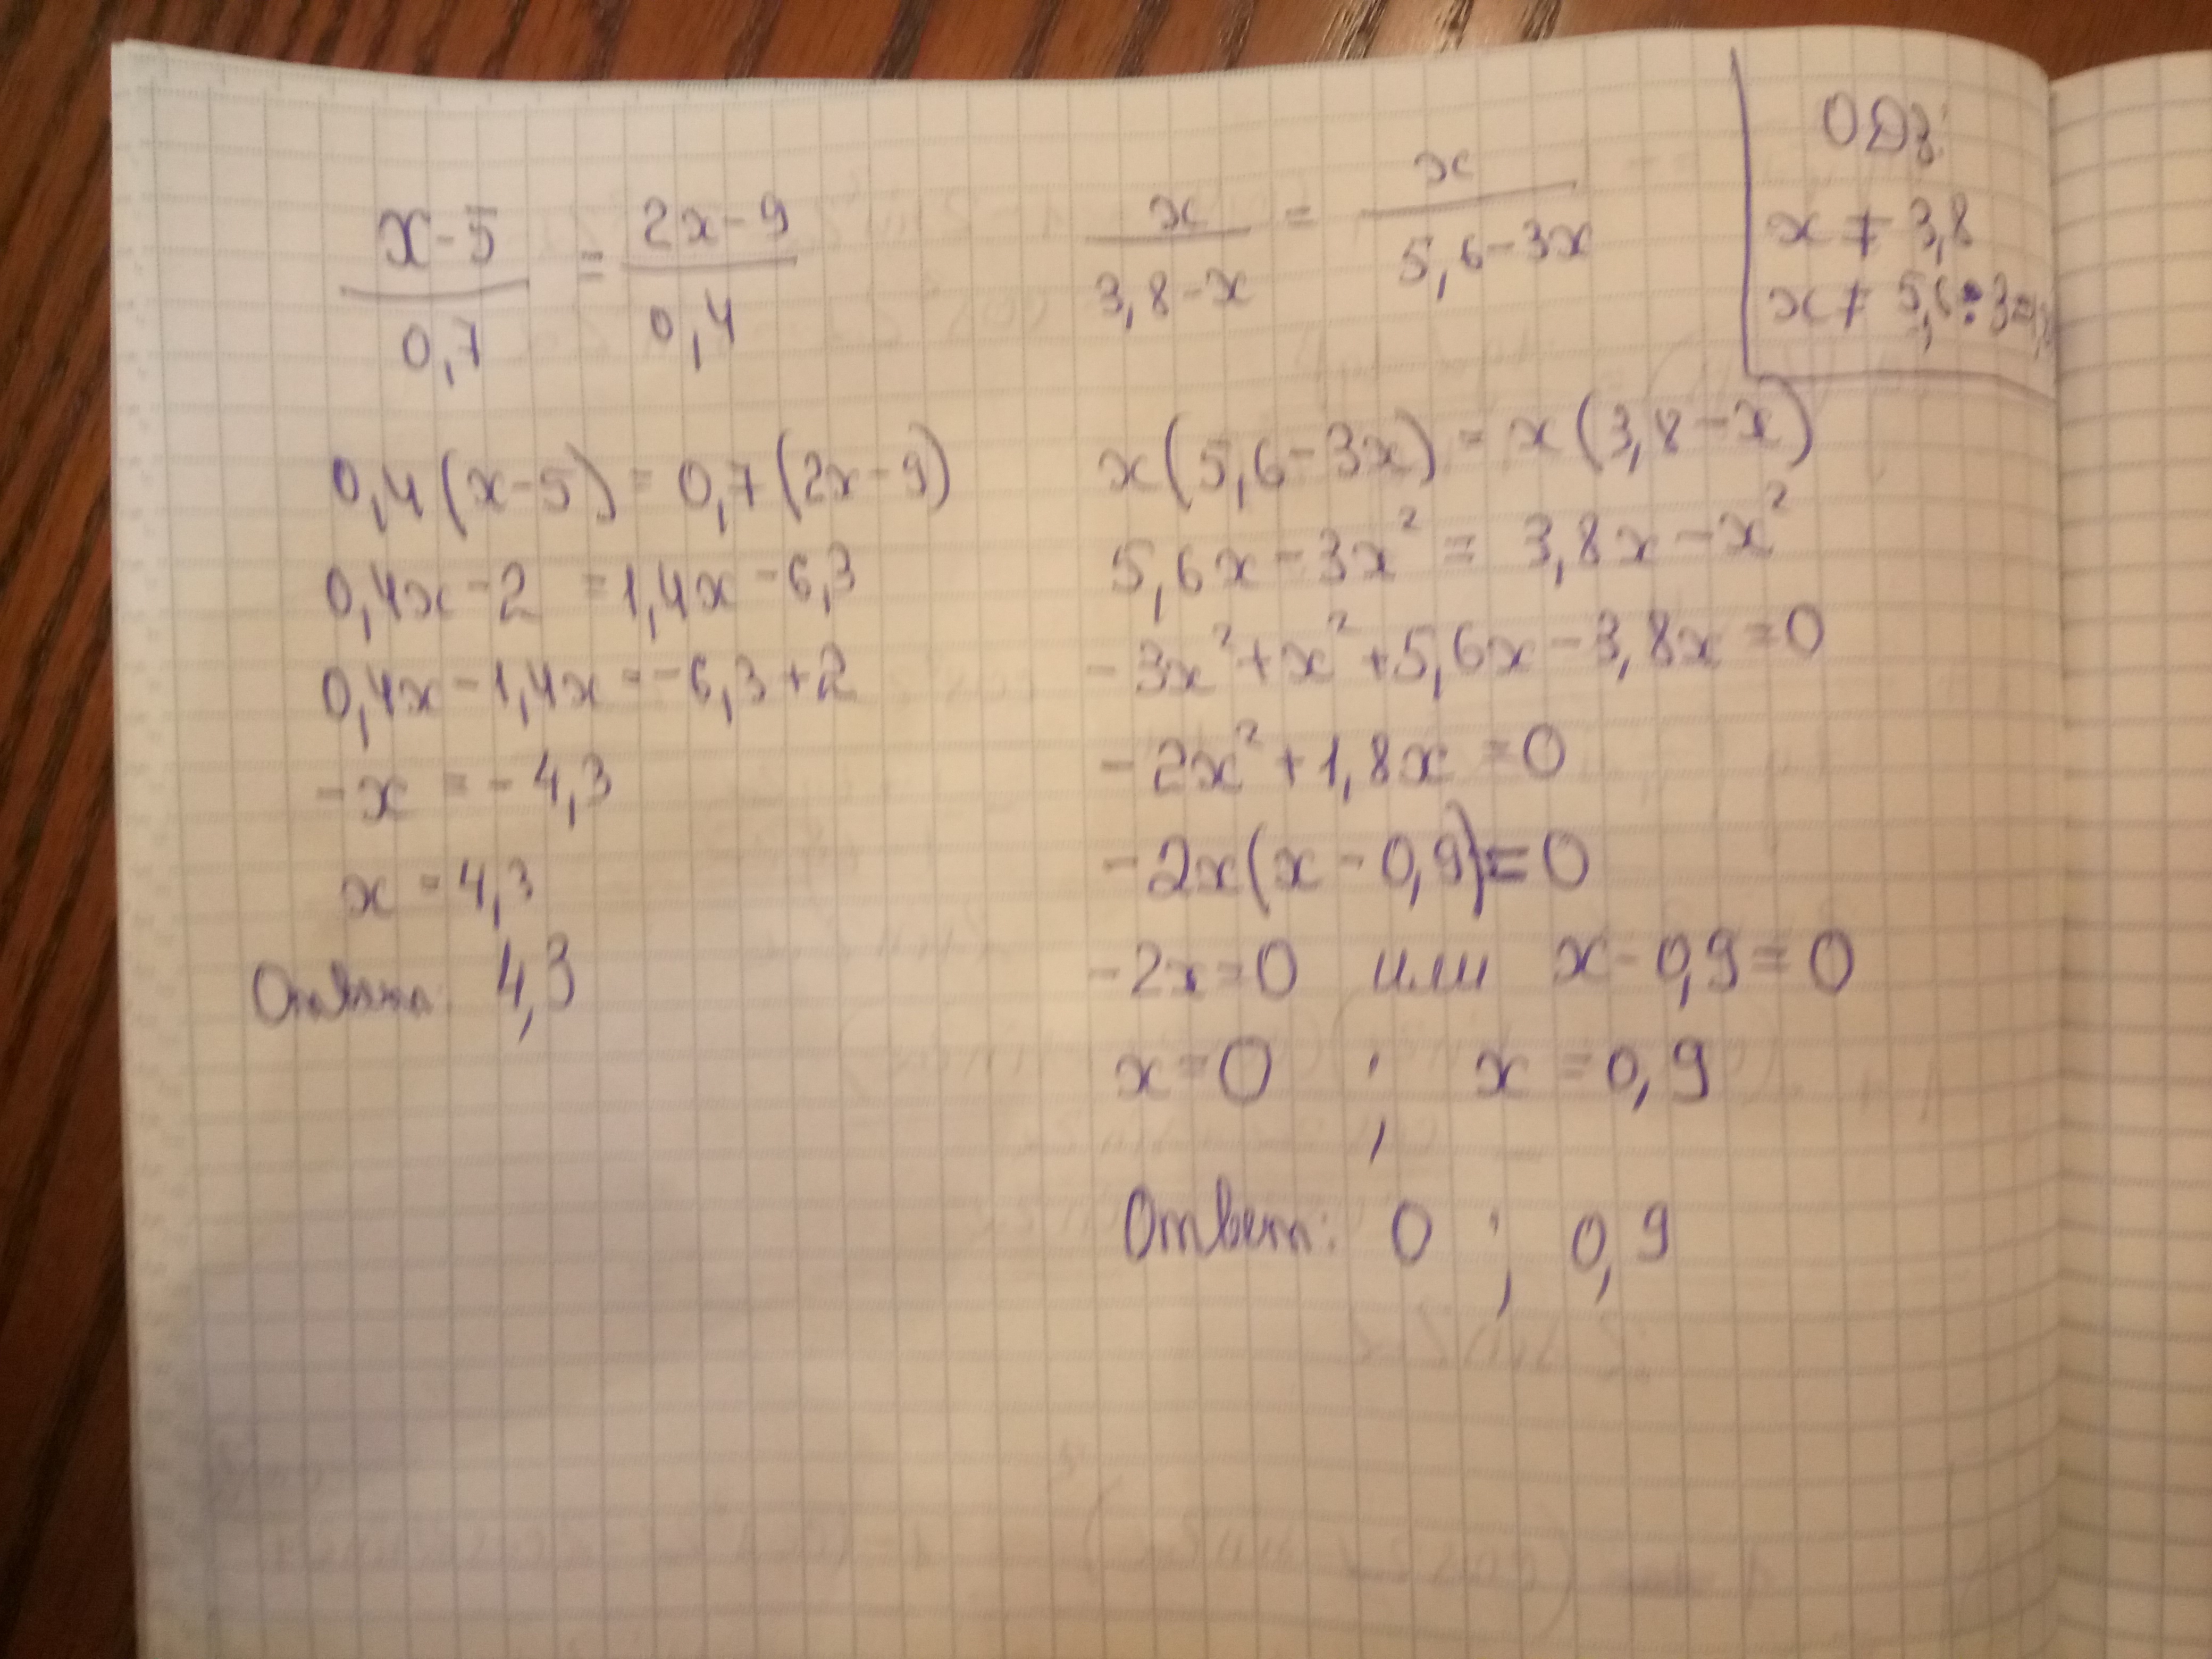 x-5/0,7 = 2x-9/0,4
0,4(x-5) = 0,7(2x-9)
0,4x-2 = 1,4x-6,3
0,4x-1,4x = -6,3+2
-x = -4,3
x = 4,3
Ответ: 4,3
x/3,8-x = x/5,6-3x
ОДЗ:
x ≠ 3,8
x ≠ 5,6:3
x(5,6-3x) = x(3,8-x)
5,6x-3x² = 3,8x-x²
-3x²+x²+5,6x-3,8x=0
-2x²+1,8x=0
-2x(x-0,9)=0
-2x=0 или x-0,9=0
x=0 ; x=0,9
Ответ: 0 ; 0,9